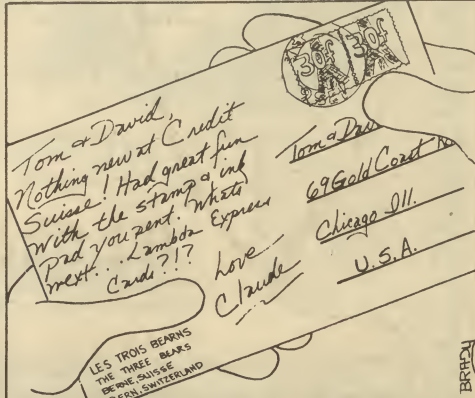 Tom & David,
Nothing new at Credit
Suisse! Had great fun
with the stamp & ink
pad you sent. Whats
next... Lambda Express
Cards?!?
Love
Claude
30f
30f
Tom & Dav
69 Gold Coast
Chicago Ill.
U.S.A.
LES TROIS BEARNS
THE THREE BEARS
BERNE, SUISSE
BERN, SWITZERLAND
BRADY